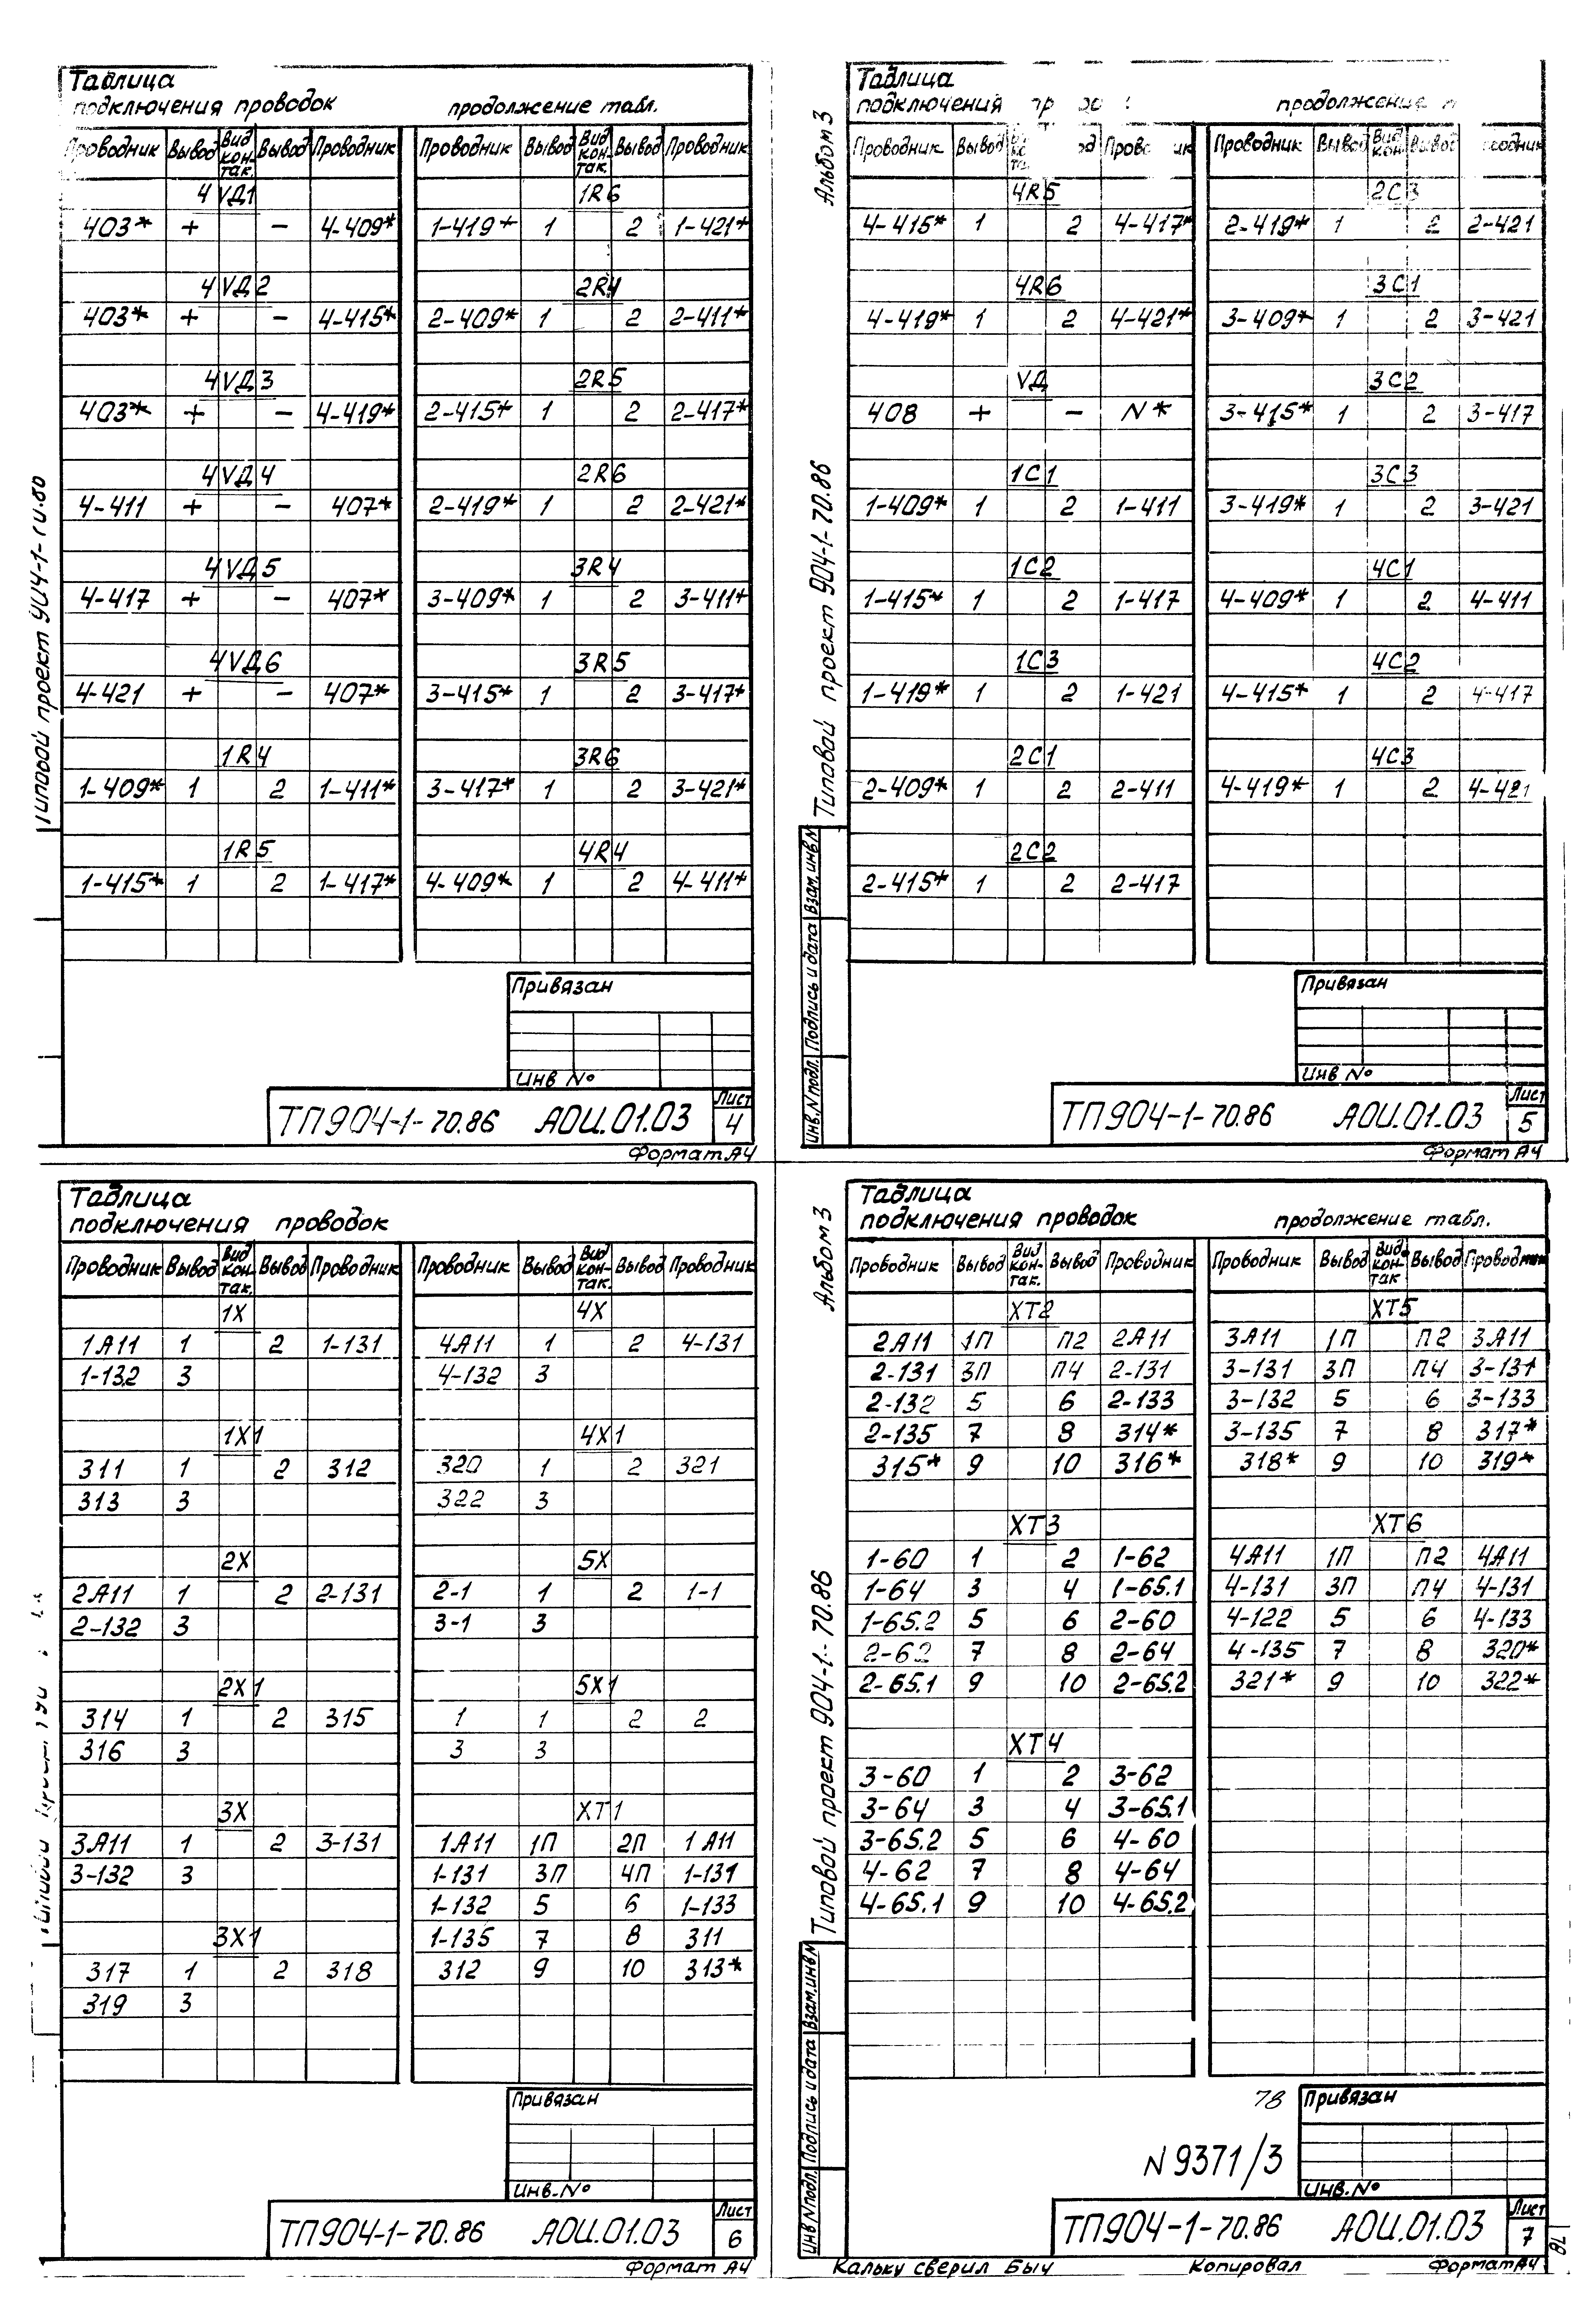 Таблица
подключения проводок продолжение табл.
Проводник Вывод Вид кон- так. Вывод Проводник Проводник Вывод Вид кон- так. Вывод Проводник
4VД1 1R6
403* + − 4-409* 1-419* 1 2 1-421*
4VД2 2R4
403* + − 4-415* 2-409* 1 2 2-411*
4VД3 2R5
403* + − 4-419* 2-415* 1 2 2-417*
4VД4 2R6
4-411 + − 407* 2-419* 1 2 2-421*
4VД5 3R4
4-417 + − 407* 3-409* 1 2 3-411*
4VД6 3R5
4-421 + − 407* 3-415* 1 2 3-417*
1R4 3R6
1-409* 1 2 1-411* 3-417* 1 2 3-421*
1R5 4R4
1-415* 1 2 1-417* 4-409* 1 2 4-411*
Привязан
Инв №
ТП904-1-70.86 АОИ.01.03 Лист 4
Формат А4
Типовой проект 904-1-
Альбом 3
Таблица
подключения продолжение
Проводник Вывод Проводник Вывод Вид кон Вывод
4R5 2C3
4-415* 1 2 4-417* 2-419* 1 2 2-421
4R6 3C1
4-419* 1 2 4-421* 3-409* 1 2 3-421
VД 3C2
408 + − N* 3-415* 1 2 3-417
1C1 3C3
1-409* 1 2 1-411 3-419* 1 2 3-421
1C2 4C1
1-415* 1 2 1-417 4-409* 1 2 4-411
1C3 4C2
1-419* 1 2 1-421 4-415* 1 2 4-417
2C1 4C3
2-409* 1 2 2-411 4-419* 1 2 4-421
2C2
2-415* 1 2 2-417
Типовой проект 904-1-70.86
Инв.N подл. Подпись и дата Взам.инв N
Привязан
Инв №
ТП904-1-70.86 АОИ.01.03 Лист 5
Формат А4
Таблица
подключения проводок
Проводник Вывод Вид кон- так. Вывод Проводник Проводник Вывод Вид кон- так. Вывод Проводник
1X 4X
1А11 1 2 1-131 4А11 1 2 4-131
1-132 3 4-132 3
1X1 4X1
311 1 2 312 320 1 2 321
313 3 322 3
2X 5X
2А11 1 2 2-131 2-1 1 2 1-1
2-132 3 3-1 3
2X1 5X1
314 1 2 315 1 1 2 2
316 3 3 3
3X XT1
3А11 1 2 3-131 1А11 1П 2П 1А11
3-132 3 1-131 3П 4П 1-131
1-132 5 6 1-133
3X1 1-135 7 8 311
317 1 2 318 312 9 10 313*
319 3
Привязан
Инв.№
ТП904-1-70.86 АОИ.01.03 Лист 6
Формат А4
Альбом 3
Таблица
подключения проводок продолжение табл.
Проводник Вывод Вид кон- так. Вывод Проводник Проводник Вывод Вид кон- так Вывод Проводник
XT2 XT5
2А11 1П П2 2А11 3А11 1П П2 3А11
2-131 3П П4 2-131 3-131 3П П4 3-131
2-132 5 6 2-133 3-132 5 6 3-133
2-135 7 8 314* 3-135 7 8 317*
315* 9 10 316* 318* 9 10 319*
XT3 XT6
1-60 1 2 1-62 4А11 1П П2 4А11
1-64 3 4 1-65.1 4-131 3П П4 4-131
1-65.2 5 6 2-60 4-122 5 6 4-133
2-62 7 8 2-64 4-135 7 8 320*
2-65.1 9 10 2-65.2 321* 9 10 322*
XT4
3-60 1 2 3-62
3-64 3 4 3-65.1
3-65.2 5 6 4-60
4-62 7 8 4-64
4-65.1 9 10 4-65.2
Типовой проект 904-1-70.86
Инв N подл. Подпись и дата Взам.инв N
78 Привязан
N 9371/3
Инв.№
ТП904-1-70.86 АОИ.01.03 Лист 7
Кальку сверил Быч Копировал Формат А4
78